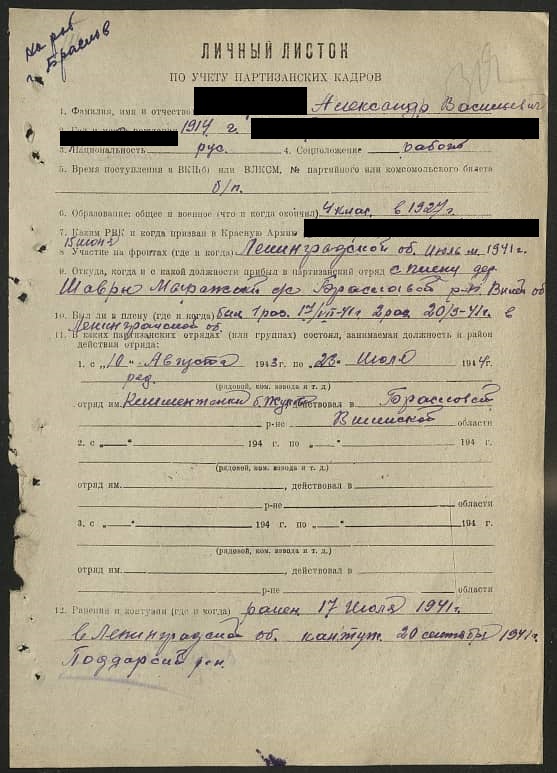 на раб
г. Браслов
ЛИЧНЫЙ ЛИСТОК
ПО УЧЕТУ ПАРТИЗАНСКИХ КАДРОВ
1. Фамилия, имя и отчество Александр Васильевич
1917 г.
3. Национальность рус. 4. Соцположение рабоч
5. Время поступления в ВКП(б) или ВЛКСМ, № партийного или комсомольского билета
б/п.
6. Образование: общее и военное (что и когда окончил) 4 клас. в 1927 г.
7. Каким РВК и когда призван в Красную Армию
15 июня
8. Участие на фронтах (где и когда) Ленинградской об. Июль м. 1941 г.
9. Откуда, когда и с какой должности прибыл в партизанский отряд с плену дер.
Шавры с/с Брасловой р-н об
10. Был ли в плену (где и когда) был 1 раз. 17/VII-41 г 2 раз 20/9-41 г. в
Ленинградской об.
11. В каких партизанских отрядах (или группах) состоял, занимаемая должность и район
действия отряда:
1. с „10" Августа 1943 г. по „23" Июля 1944 г.
ряд.
(рядовой, ком. взвода и т. д.)
отряд им. б. действовал в Брасловой
Вилиской области
2. с „ " 194 г. по „ " 194 г.
(рядовой, ком. взвода и т. д.)
отряд им. , действовал в
р-не области
3. с „ " 194 г. по „ " 194 г.
(рядовой, ком. взвода и т. д.)
отряд им. , действовал в
р-не области
12. Ранения и контузии (где и когда) ранен 17 Июля 1941 г.
в Ленинградской об. кантуж. 20 сентября 1941 г.
Поддарский р-н.